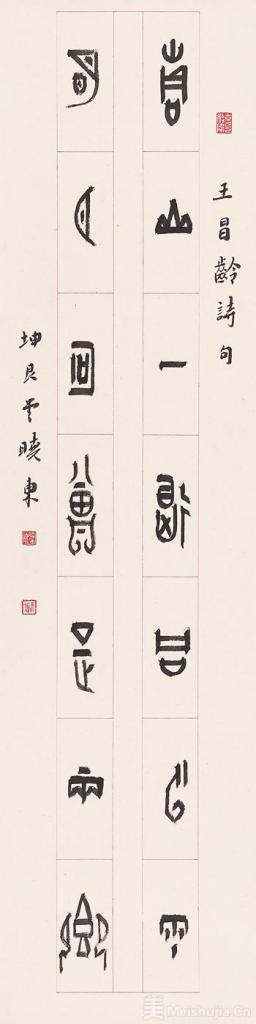 王昌齡詩句
青山一道同云雨
明月何曾是兩鄉
坤 曉東
美 Meishujia.Cn